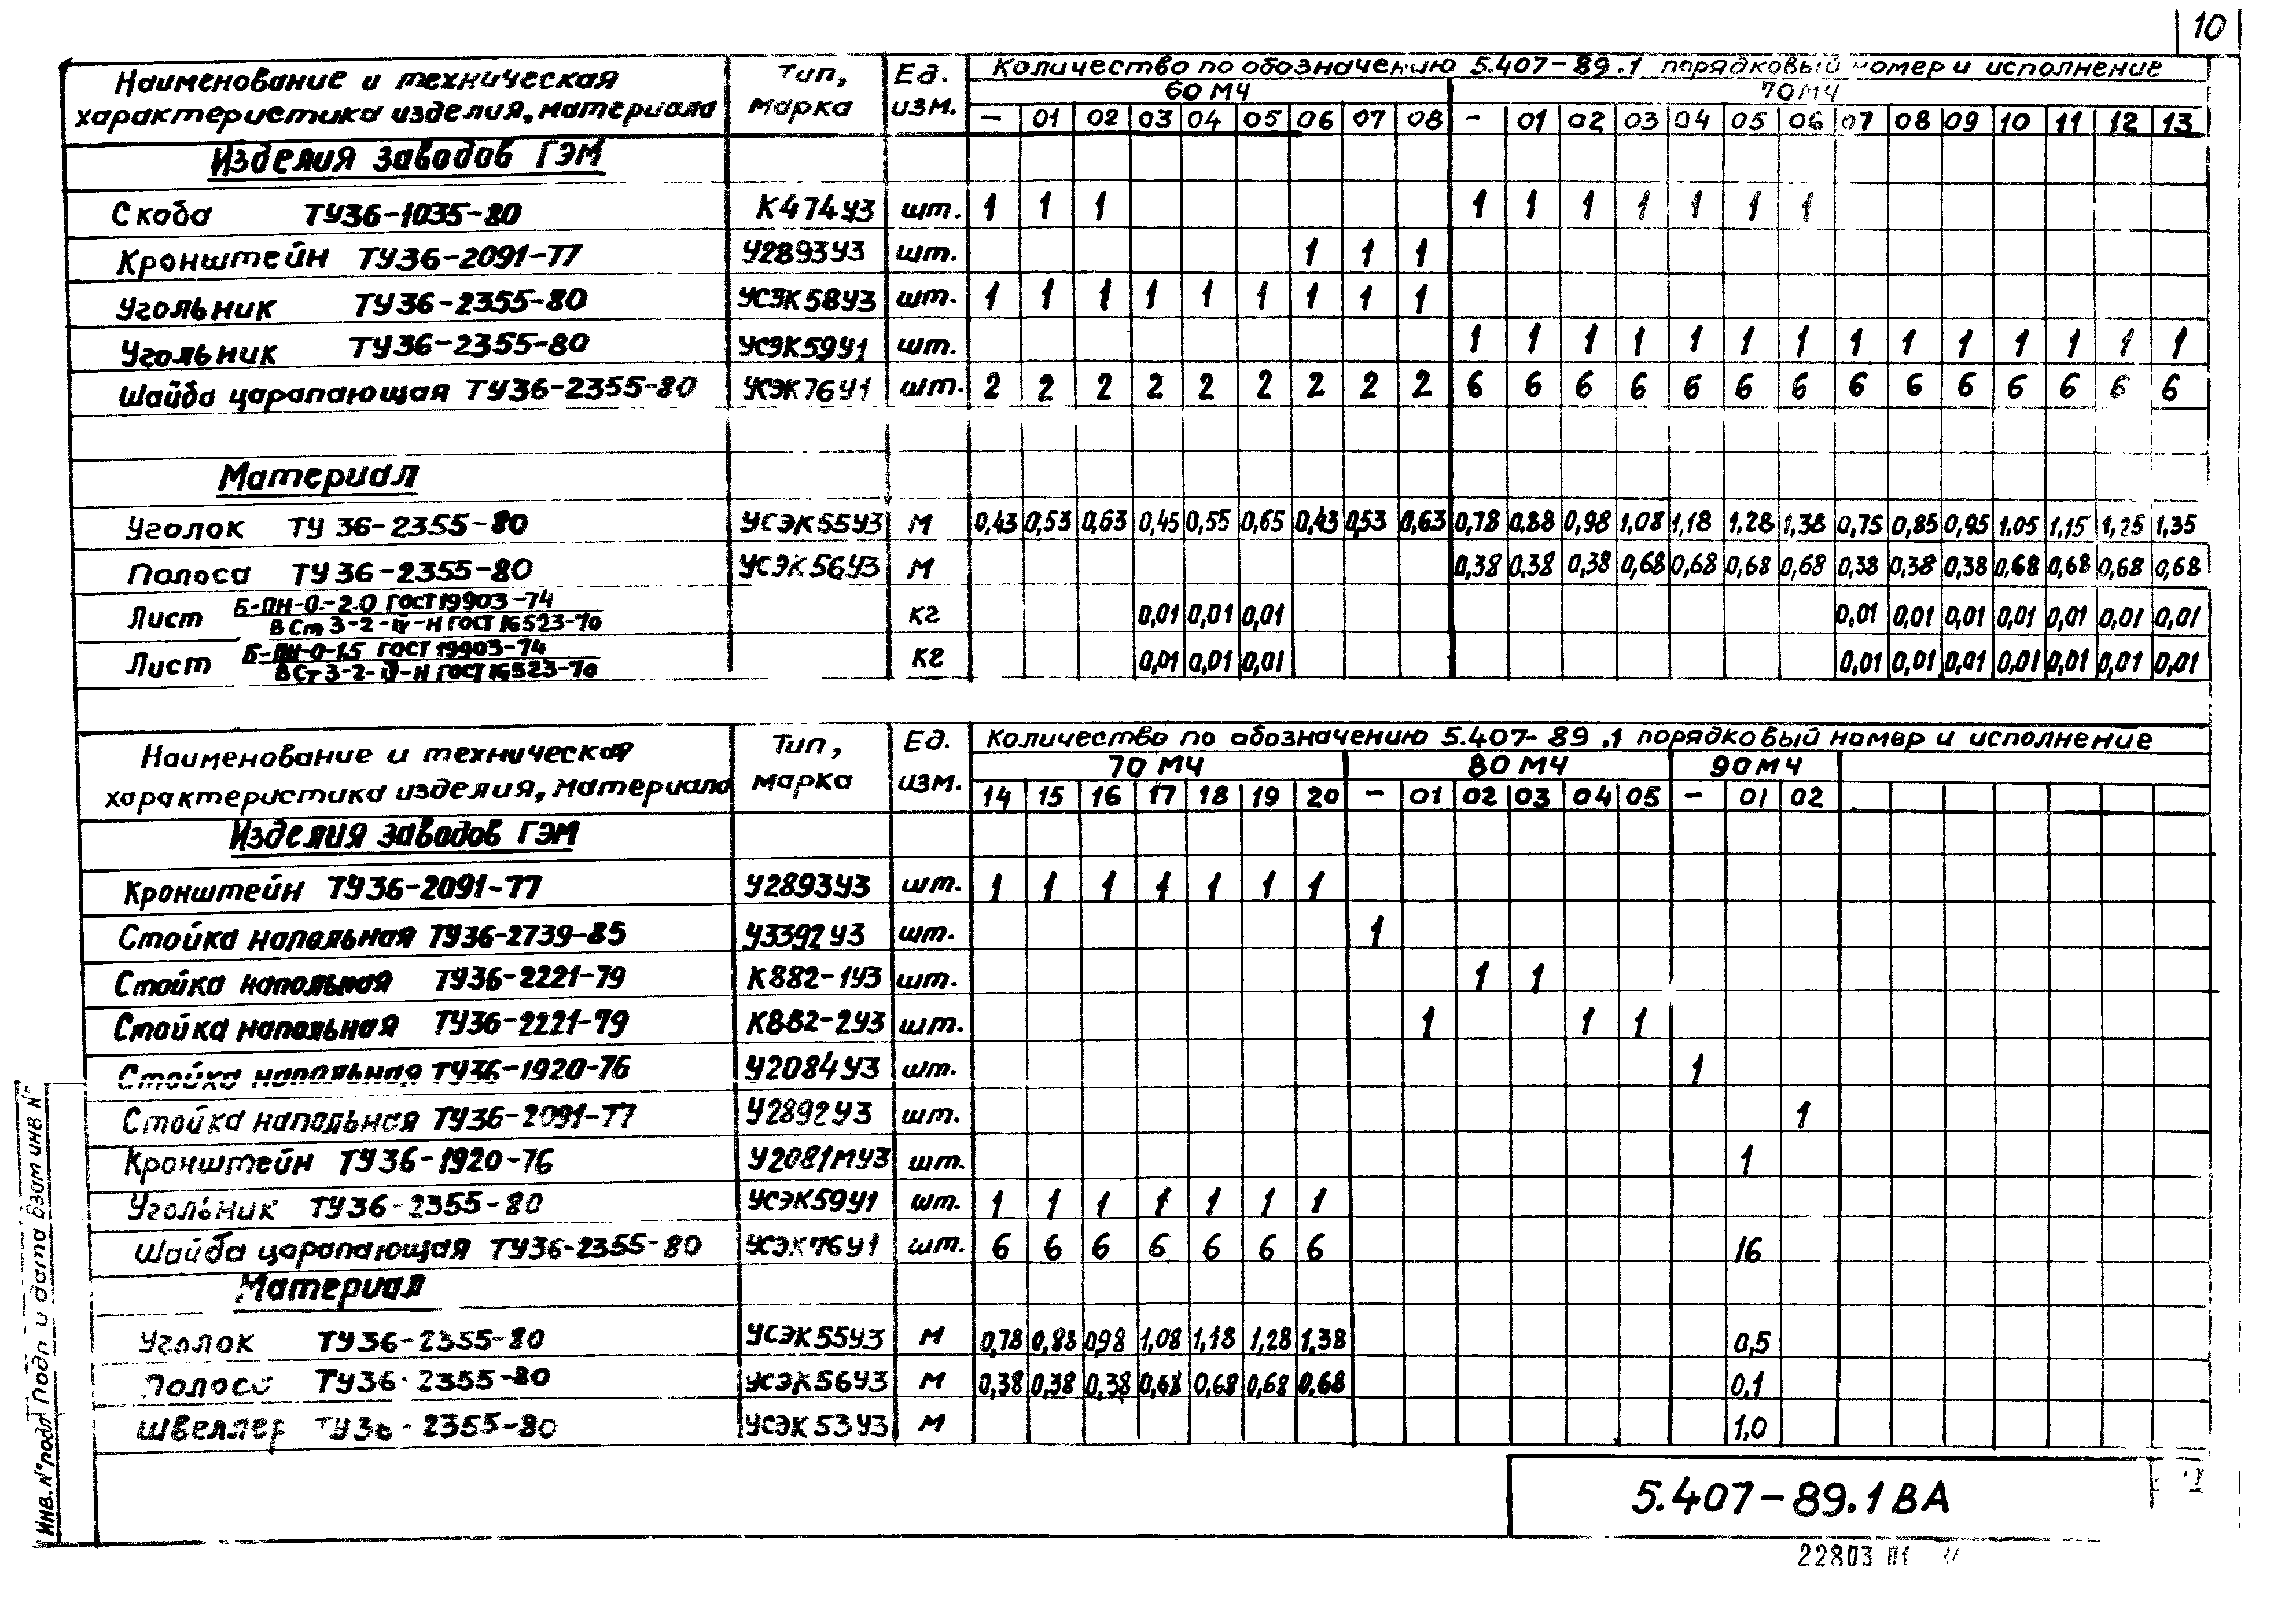 10
Наименование и техническая характеристика изделия, материала | Тип, марка | Ед. изм. | Количество по обозначению 5.407-89.1 порядковый номер и исполнение
60МЧ | 70МЧ
– 01 02 03 04 05 06 07 08 – 01 02 03 04 05 06 07 08 09 10 11 12 13
Изделия заводов ГЭМ
Скоба ТУ36-1035-80 К474У3 шт. 1 1 1 1 1 1 1 1 1 1
Кронштейн ТУ36-2091-77 У2893У3 шт. 1 1 1
Угольник ТУ36-2355-80 УСЭК58У3 шт. 1 1 1 1 1 1 1 1 1
Угольник ТУ36-2355-80 УСЭК59У1 шт. 1 1 1 1 1 1 1 1 1 1 1 1 1 1
Шайба царапающая ТУ36-2355-80 УСЭК76У1 шт. 2 2 2 2 2 2 2 2 2 6 6 6 6 6 6 6 6 6 6 6 6 6 6
Материал
Уголок ТУ 36-2355-80 УСЭК55У3 М 0,43 0,53 0,63 0,45 0,55 0,65 0,43 0,53 0,63 0,78 0,88 0,98 1,08 1,18 1,28 1,38 0,75 0,85 0,95 1,05 1,15 1,25 1,35
Полоса ТУ 36-2355-80 УСЭК56У3 М 0,38 0,38 0,38 0,68 0,68 0,68 0,68 0,38 0,38 0,38 0,68 0,68 0,68 0,68
Лист Б-ПН-О-2.0 ГОСТ19903-74 кг 0,01 0,01 0,01 0,01 0,01 0,01 0,01 0,01 0,01 0,01
ВСт3-2-IV-Н ГОСТ 16523-70
Лист Б-ПН-О-1.5 ГОСТ19903-74 кг 0,01 0,01 0,01 0,01 0,01 0,01 0,01 0,01 0,01 0,01
ВСт3-2-IV-Н ГОСТ 16523-70
Наименование и техническая характеристика изделия, материала | Тип, марка | Ед. изм. | Количество по обозначению 5.407-89.1 порядковый номер и исполнение
70 МЧ | 80 МЧ | 90 МЧ
14 15 16 17 18 19 20 – 01 02 03 04 05 – 01 02
Изделия заводов ГЭМ
Кронштейн ТУ36-2091-77 У2893У3 шт. 1 1 1 1 1 1 1
Стойка напольная ТУ36-2739-85 У3392У3 шт. 1
Стойка напольная ТУ36-2221-79 К882-1У3 шт. 1 1
Стойка напольная ТУ36-2221-79 К882-2У3 шт. 1 1 1
Стойка напольная ТУ36-1920-76 У2084У3 шт. 1
Стойка напольная ТУ36-2091-77 У2892У3 шт. 1
Кронштейн ТУ36-1920-76 У2081МУ3 шт. 1
Угольник ТУ36-2355-80 УСЭК59У1 шт. 1 1 1 1 1 1 1
Шайба царапающая ТУ36-2355-80 УСЭК76У1 шт. 6 6 6 6 6 6 6 16
Материал
Уголок ТУ36-2355-80 УСЭК55У3 М 0,78 0,88 0,98 1,08 1,18 1,28 1,38 0,5
Полоса ТУ36-2355-80 УСЭК56У3 М 0,38 0,38 0,38 0,68 0,68 0,68 0,68 0,1
Швеллер ТУ36-2355-80 УСЭК53У3 М 1,0
Инв. N°подл Подп и дата Взам инв N°
5.407-89.1 ВА
22803 01